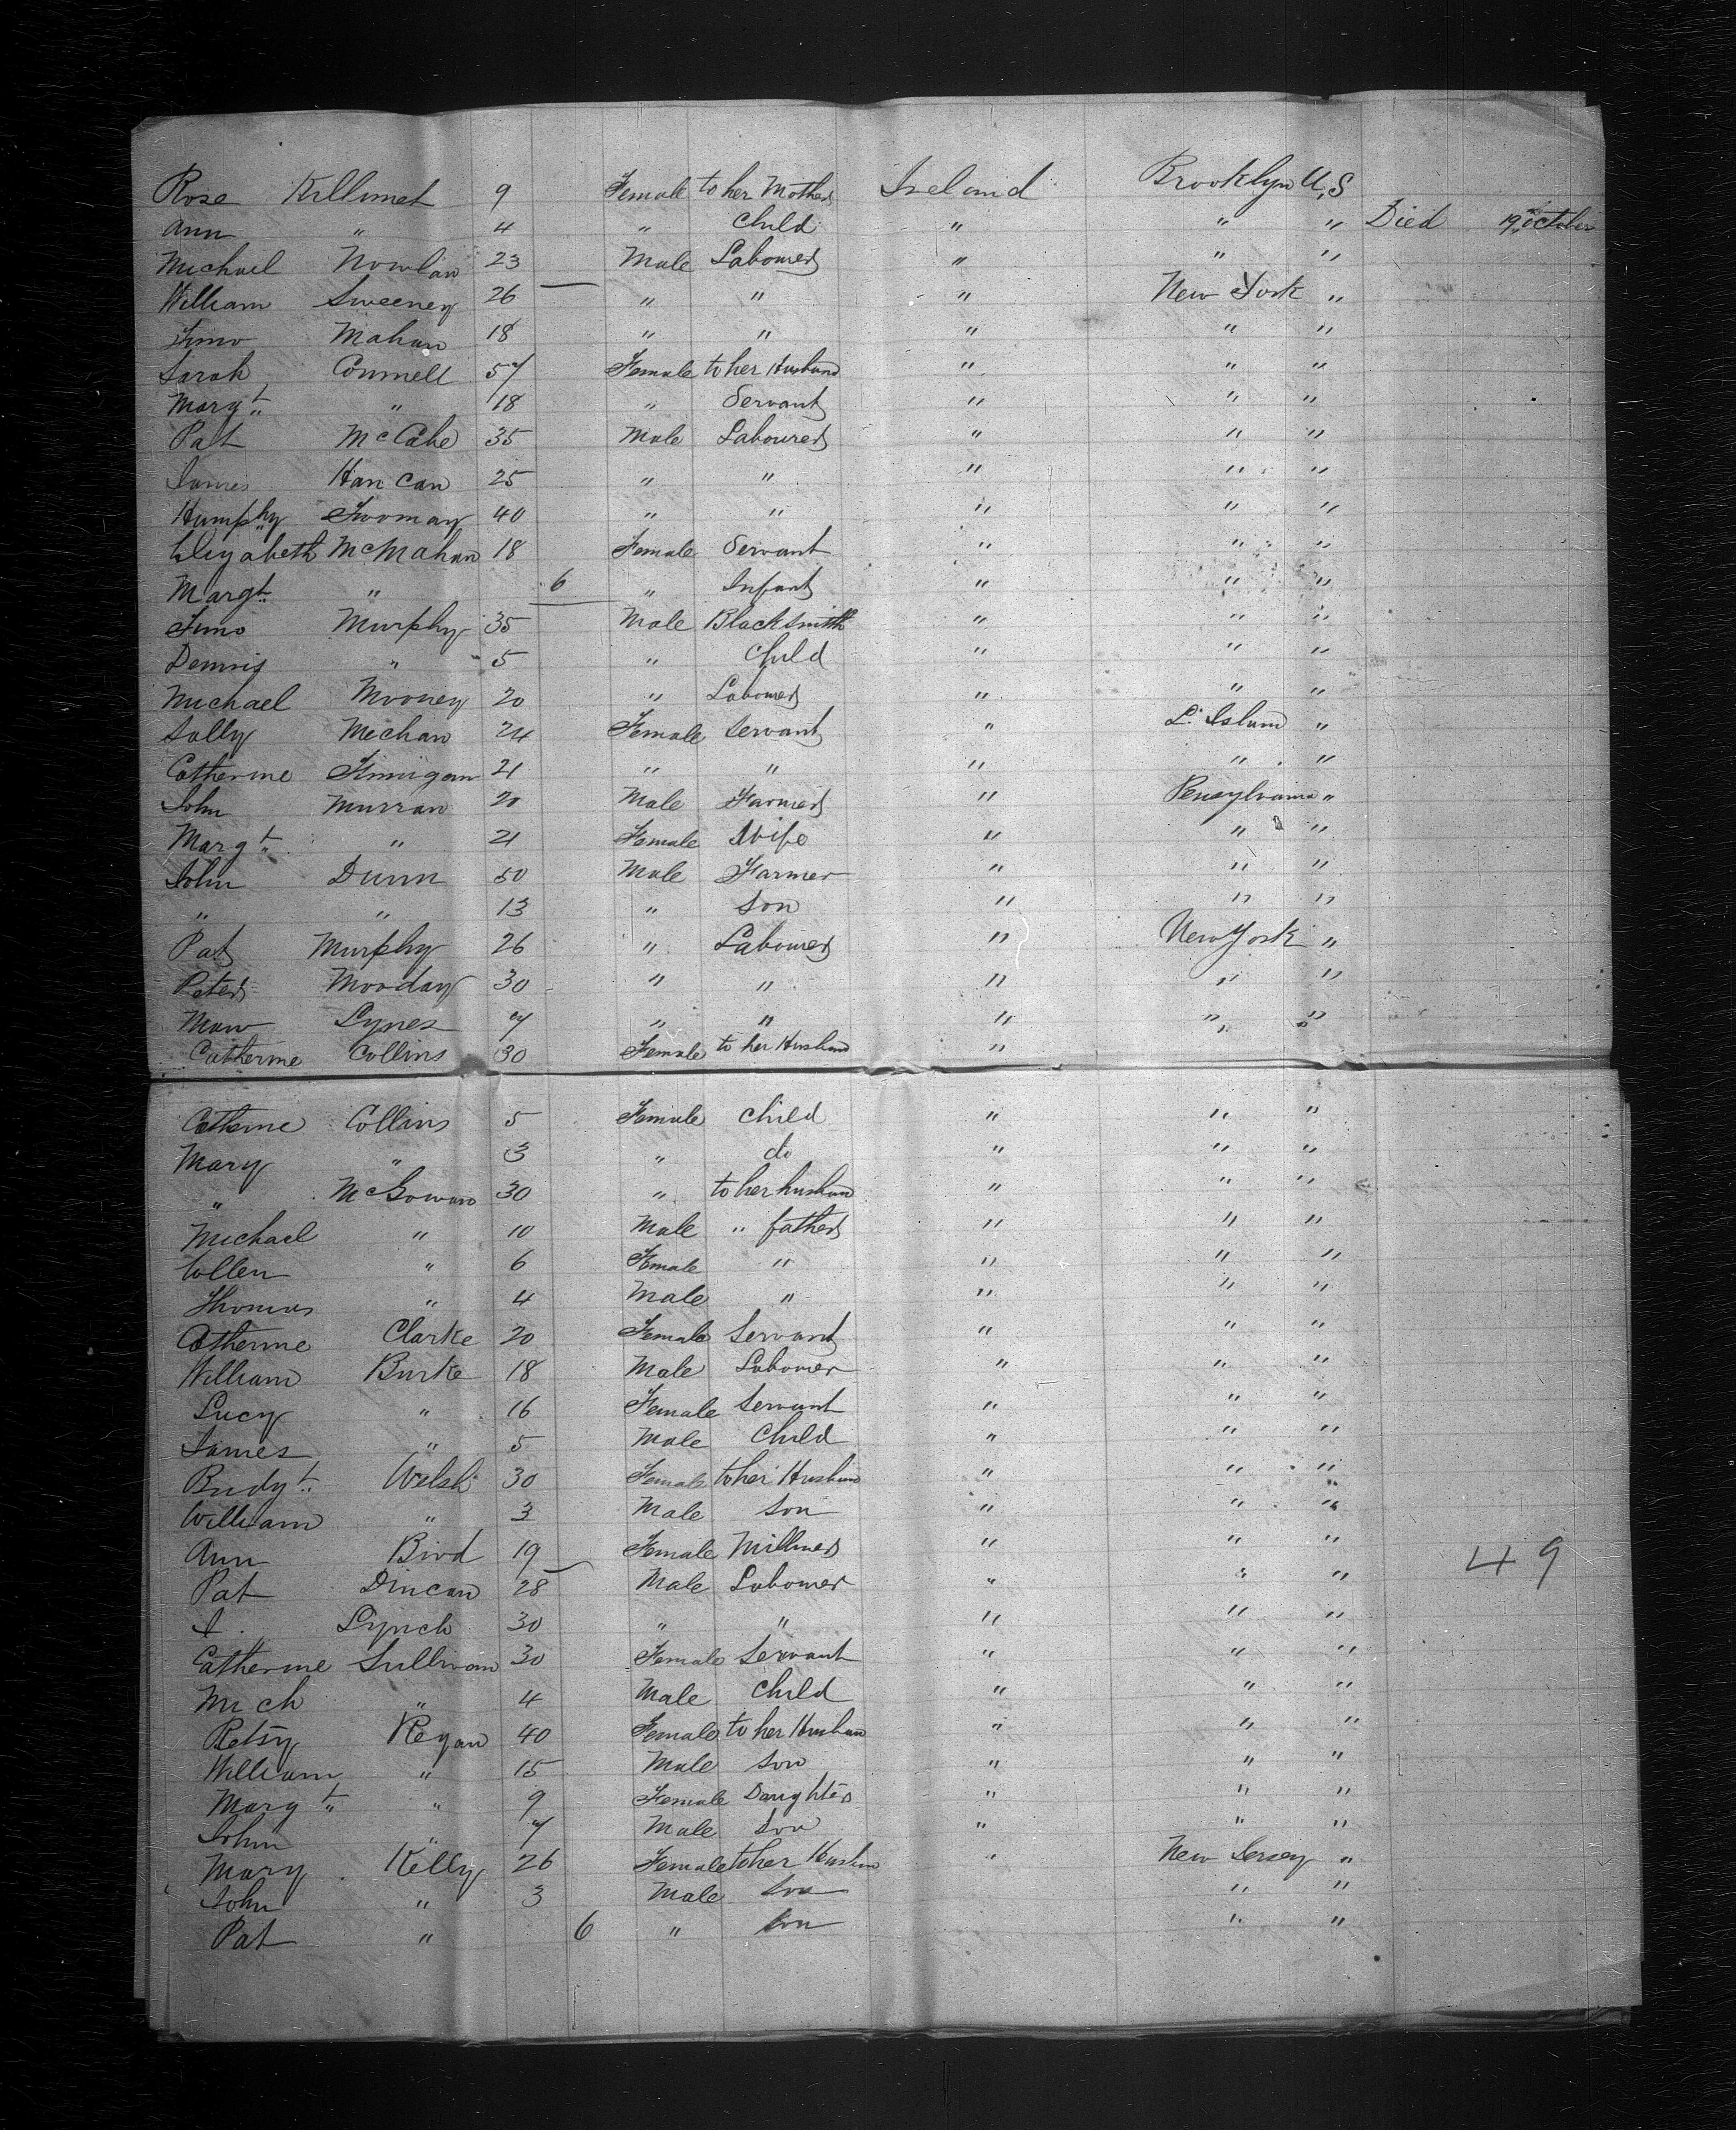 Rose Killimet 9 Female to her Mother Ireland Brooklyn U,S
Ann " 4 " Child " " " Died 19th October
Michael Nowlan 23 Male Labourer " " "
William Sweeney 26 " " " New York "
Timo Mahan 18 " " " " "
Sarah Connell 57 Female to her Husband " " "
Margt " 18 " Servant " " "
Pat McCabe 35 Male Labourer " " "
James Han can 25 " " " " "
Humphy 40 " " " " "
Elizabeth McMahan 18 Female Servant " " "
Margt " 6 " Infant " " "
Timo Murphy 35 Male Blacksmith " " "
Dennis " 5 " Child " " "
Michael Mooney 20 " Labourer " " "
Sally Mechan 24 Female Servant " L. Island "
Catherine Finnigan 21 " " " " "
John Murran 20 Male Farmer " Pensylvania "
Margt " 21 Female Wife " " "
John Dunn 50 Male Farmer " " "
" " 13 " Son " " "
Pat Murphy 26 " Labourer " New York "
Peter Mooday 30 " " " " "
Lynes 7 " " " " "
Catherine Collins 30 Female to her Husband " " "
Catherine Collins 5 Female Child " " "
Mary " 3 " do " " "
" McGowan 30 " to her husban " " "
Michael " 10 Male " father " " "
Ellen " 6 Female " " " "
Thomas " 4 Male " " " "
Catherine Clarke 20 Female Servant " " "
William Burke 18 Male Labourer " " "
Lucy " 16 Female Servant " " "
James " 5 Male Child " " "
Bridgt Welsh 30 Female to her Husban " " "
William " 3 Male Son " " "
Ann Bird 19 Female Milliner " " "
Pat Dincan 28 Male Labourer " " " 49
J. Lynch 30 " " " " "
Catherine Sullivan 30 Female Servant " " "
Mich " 4 Male Child " " "
Betsy Regan 40 Female to her Husban " " "
William " 15 Male Son " " "
Margt " 9 Female Daughter " " "
John " 7 Male Son " " "
Mary Kelly 26 Female to her Husban " New Jersey "
John " 3 Male Son " "
Pat " 6 " Son " "